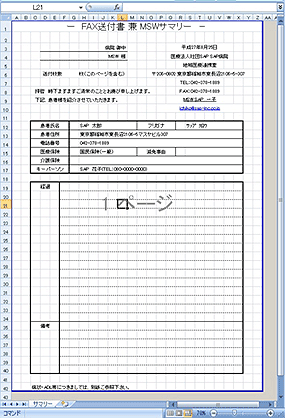 L21
－ FAX送付書 兼 MSWサマリー －
病院 御中
平成27年8月25日
MSW 様
医療法人社団SAP SAP病院
地域医療連携室
送付枚数
枚(このページを含む)
東京都稲城市東長沼2106-5-307
TEL:042-378-1889
拝啓 時下ますますご清栄のこととお慶び申し上げます。
下記、患者様を紹介させていただきます。
患者氏名 SAP 太郎 フリガナ サップ タロウ
患者住所 東京都稲城市東長沼2106-5マスヤビル307
電話番号 042-378-1889
医療保険 国民保険(一般) 減免事由
介護保険
キーパーソン SAP 花子(TEL:000-0000-0000)
経過
1 ページ
備考
サマリー
コマンド
70%